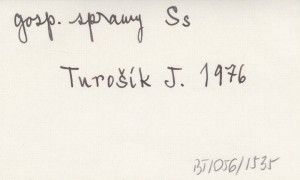 gosp. spravy Ss
Turošík J. 1976
BJ1056/1535